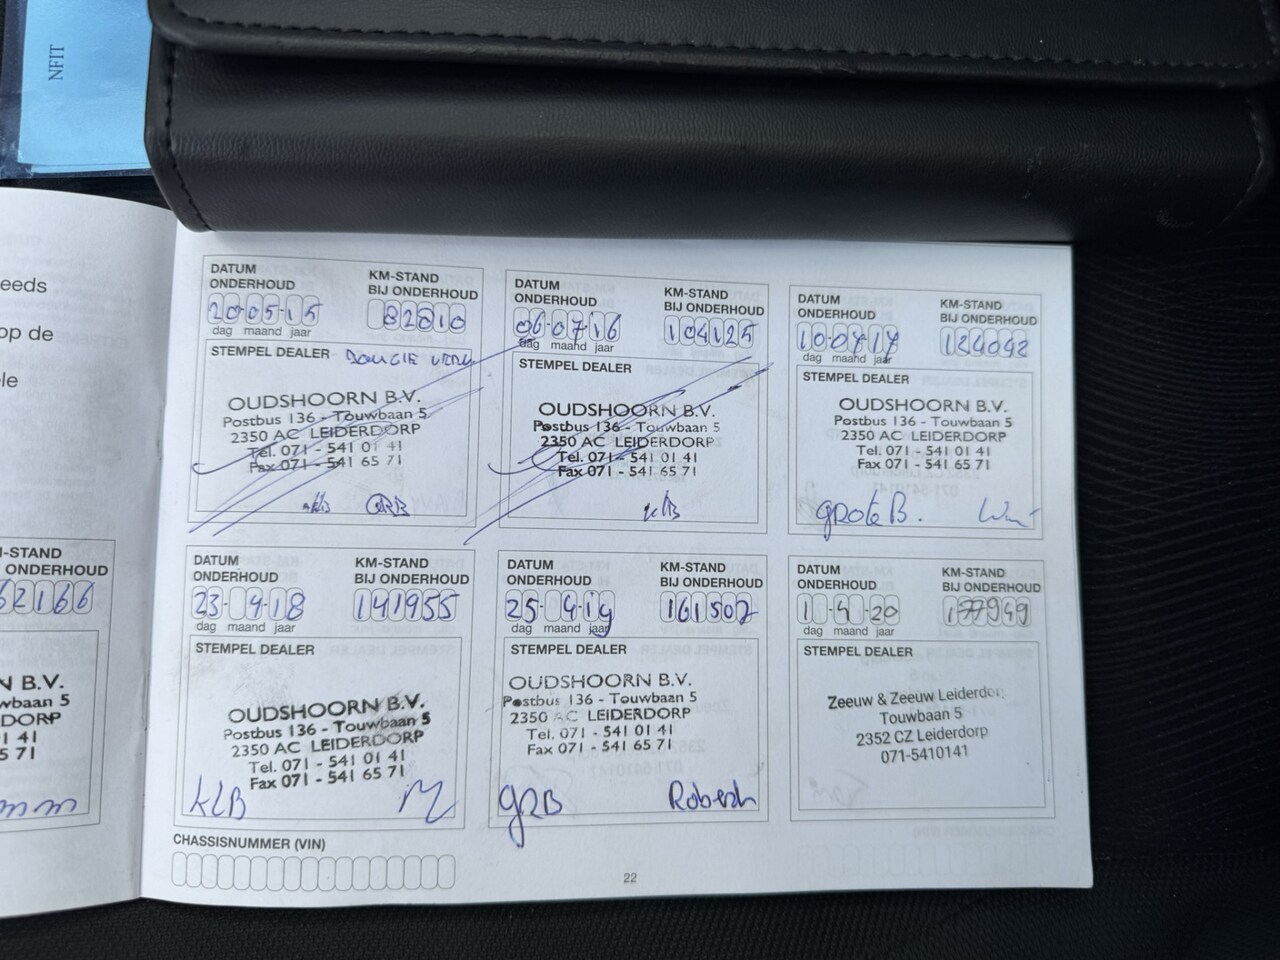 NFIT
eeds
op de
ele
-STAND
ONDERHOUD
62166
N B.V.
wbaan 5
DORP
1 41
5 71
DATUM
ONDERHOUD
KM-STAND
BIJ ONDERHOUD
20-05-15
82810
dag maand jaar
STEMPEL DEALER
OUDSHOORN B.V.
Postbus 136 - Touwbaan 5
2350 AC LEIDERDORP
Tel. 071 - 541 01 41
Fax 071 - 541 65 71
DATUM
ONDERHOUD
KM-STAND
BIJ ONDERHOUD
06-07-16
104125
dag maand jaar
STEMPEL DEALER
OUDSHOORN B.V.
Postbus 136 - Touwbaan 5
2350 AC LEIDERDORP
Tel. 071 - 541 01 41
Fax 071 - 541 65 71
KLB
DATUM
ONDERHOUD
KM-STAND
BIJ ONDERHOUD
10-07-17
124042
dag maand jaar
STEMPEL DEALER
OUDSHOORN B.V.
Postbus 136 - Touwbaan 5
2350 AC LEIDERDORP
Tel. 071 - 541 01 41
Fax 071 - 541 65 71
grote B.
DATUM
ONDERHOUD
KM-STAND
BIJ ONDERHOUD
23-4-18
141955
dag maand jaar
STEMPEL DEALER
OUDSHOORN B.V.
Postbus 136 - Touwbaan 5
2350 AC LEIDERDORP
Tel. 071 - 541 01 41
Fax 071 - 541 65 71
KLB
DATUM
ONDERHOUD
KM-STAND
BIJ ONDERHOUD
25-4-19
161507
dag maand jaar
STEMPEL DEALER
OUDSHOORN B.V.
Postbus 136 - Touwbaan 5
2350 AC LEIDERDORP
Tel. 071 - 541 01 41
Fax 071 - 541 65 71
GRB
DATUM
ONDERHOUD
KM-STAND
BIJ ONDERHOUD
1-4-20
177949
dag maand jaar
STEMPEL DEALER
Zeeuw & Zeeuw Leiderdorp
Touwbaan 5
2352 CZ Leiderdorp
071-5410141
CHASSISNUMMER (VIN)
22